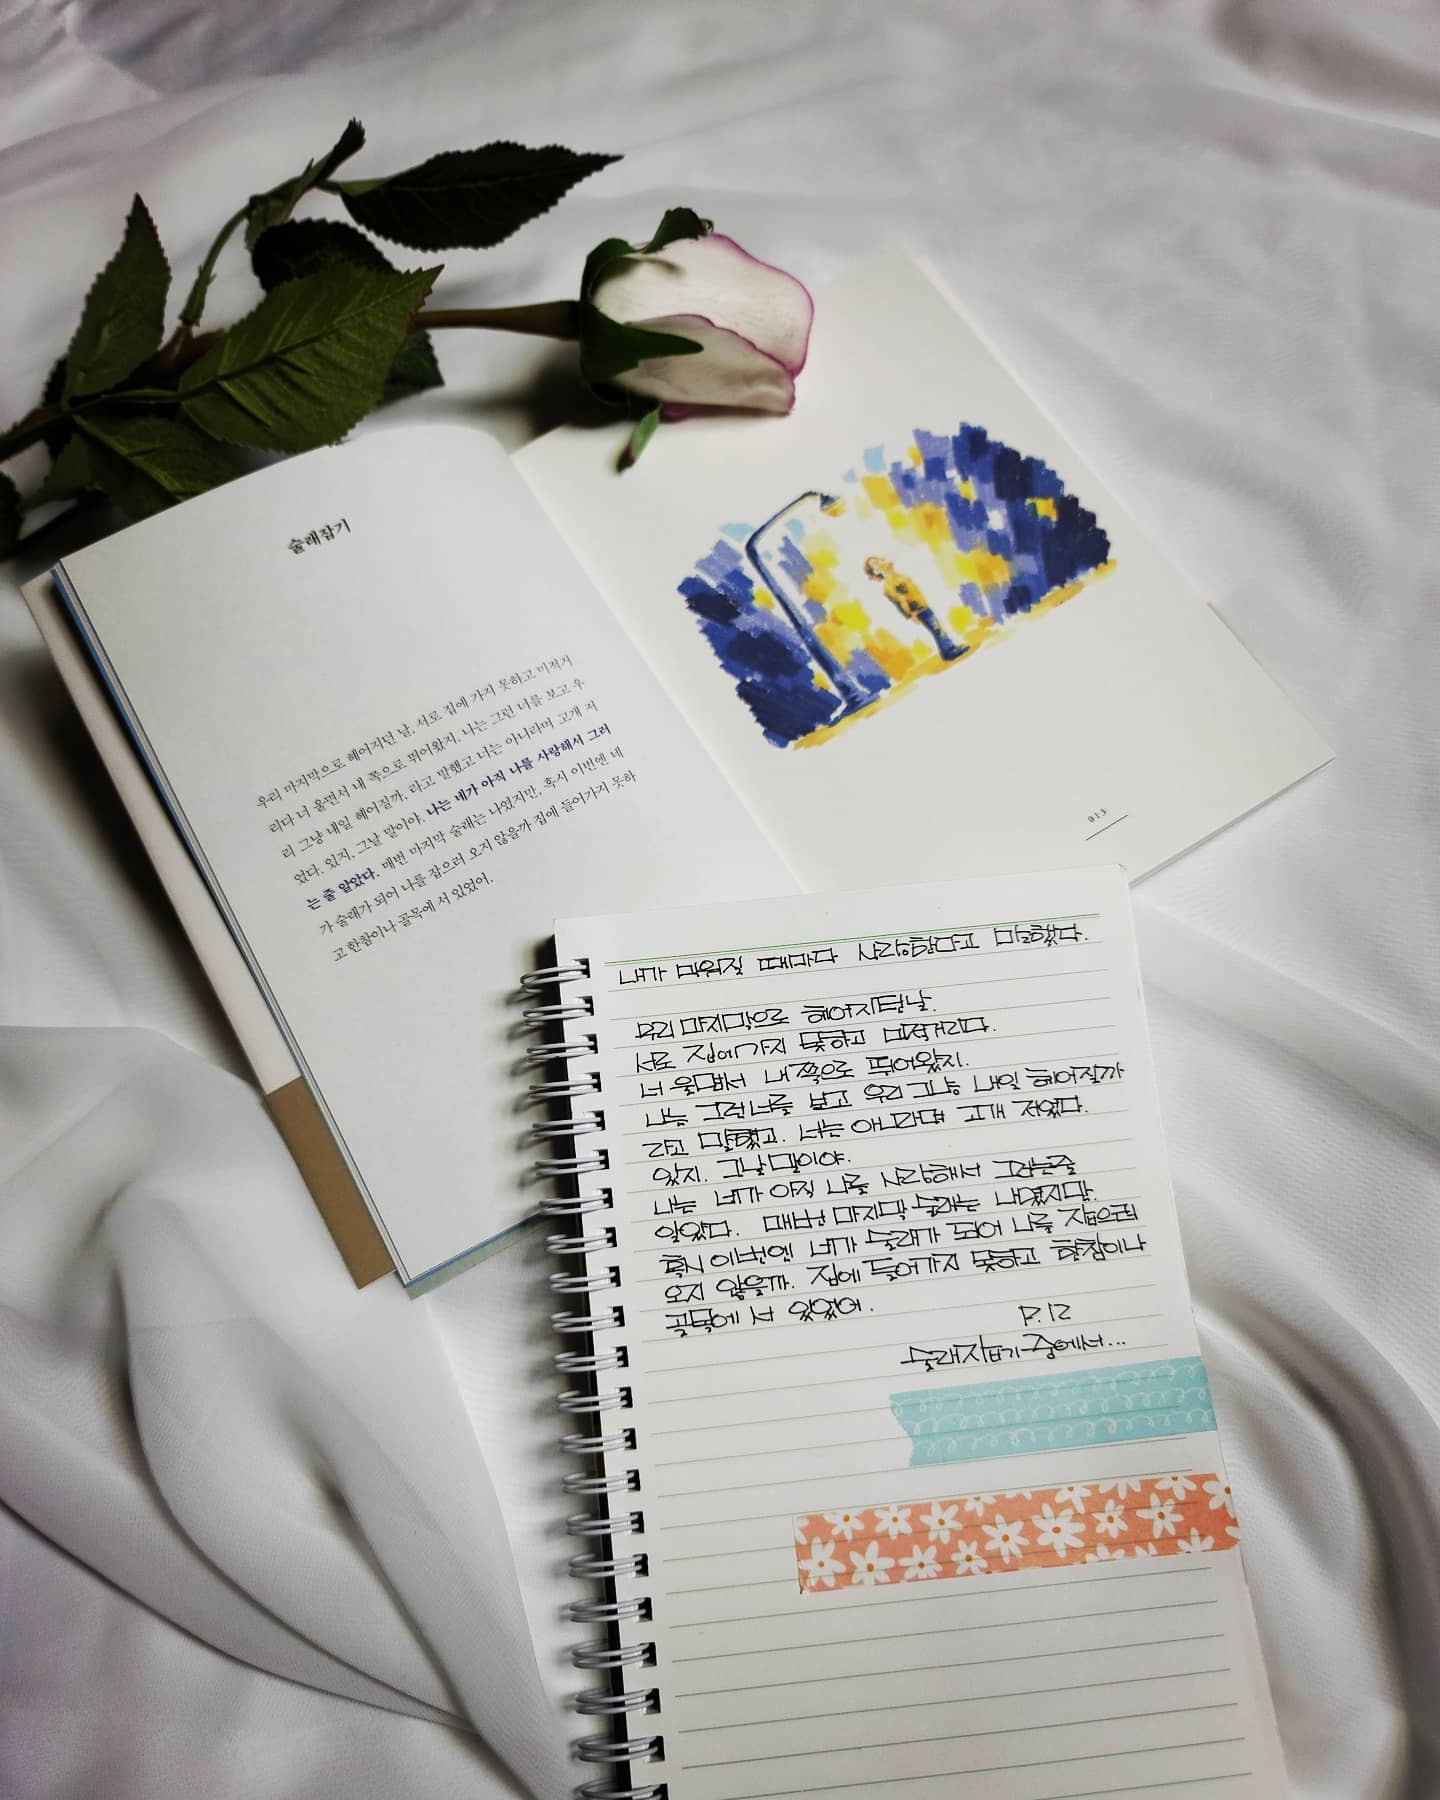 술래잡기
우리 마지막으로 헤어지던 날, 서로 집에 가지 못하고 미적거
리다 너 울면서 내 쪽으로 뛰어왔지. 나는 그런 너를 보고 우
리 그냥 내일 헤어질까, 라고 말했고 너는 아니라며 고개 저
었다. 있지, 그날 말이야. 나는 네가 아직 나를 사랑해서 그러
는 줄 알았다. 매번 마지막 술래는 나였지만, 혹시 이번엔 네
가 술래가 되어 나를 잡으러 오지 않을까 집에 들어가지 못하
고 한참이나 골목에 서 있었어.
013
내가 미워질 때마다 사랑한다고 말했다.
우리 마지막으로 헤어지던날.
서로 집에 가지 못하고 미적거리다.
너 울면서 내쪽으로 뛰어왔지.
나는 그런너를 보고 우리 그냥 내일 헤어질까
라고 말했고. 너는 아니라며 고개 저었다.
있지. 그날말이야.
나는 네가 아직 나를 사랑해서 그러는줄
알았다. 매번 마지막 술래는 나였지만.
혹시 이번엔 너가 술래가 되어 나를 잡으러
오지 않을까. 집에 들어가지 못하고 한참이나
골목에 서 있었어.
P.12
술래잡기 중에서...